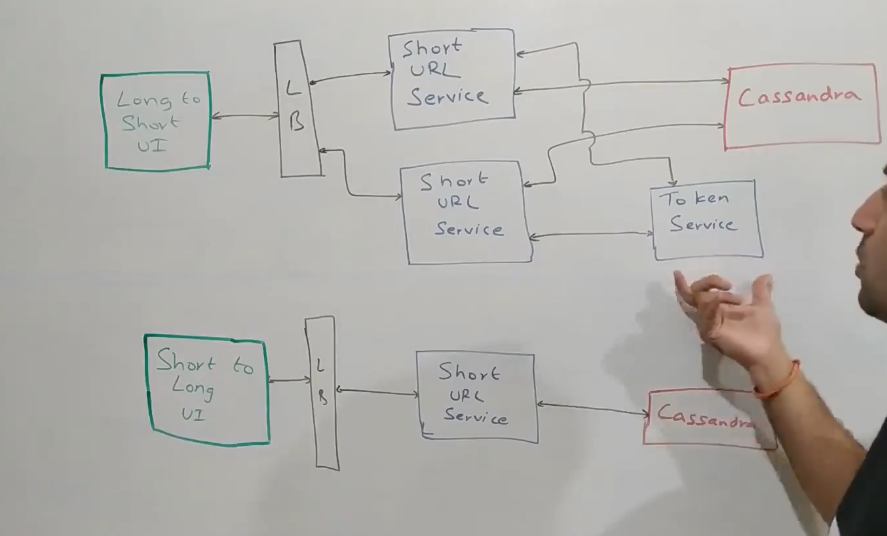 Long to
Short
UI
L
B
Short
URL
Service
Cassandra
Short
URL
Service
Token
Service
Short to
Long
UI
L
B
Short
URL
Service
Cassandra